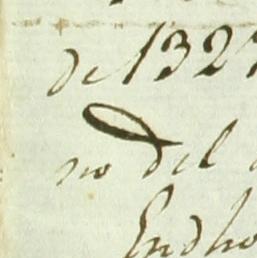 de 132
no del
Endho